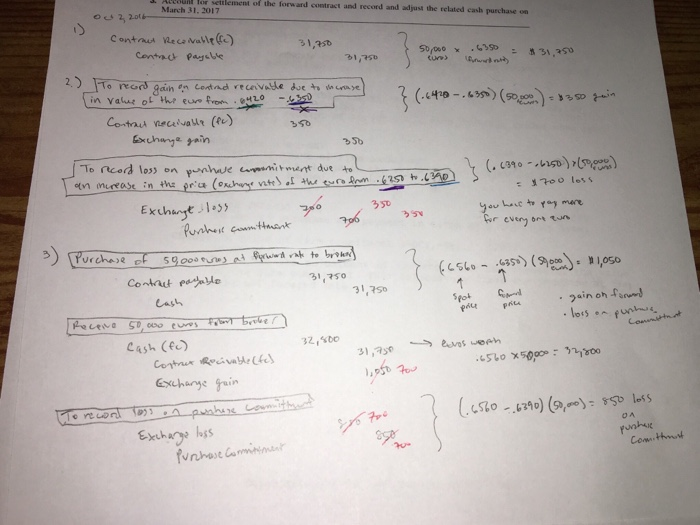 Account for settlement of the forward contract and record and adjust the related cash purchase on
March 31, 2017
Oct 2, 2016
1)
Contract Receivable (fc) 31,750
Contract payable 31,750
50,000 x .6350 = $31,750
(euros) (forward rate)
2.) To record gain on contract receivable due to increase
in value of the euro from .6420 - .6350
(.6420 - .6350) (50,000) = $350 gain
Contract receivable (fc) 350
Exchange gain 350
To record loss on purchase commitment due to
an increase in the price (exchange rate) of the euro from .6250 to .6390
(.6390 - .6250) x (50,000)
= $700 loss
Exchange loss 700 350
Purchase commitment 700 350
you have to pay more
for every one euro
3) Purchase of 50,000 euros at forward rate to broker
Contract payable 31,750
Cash 31,750
(.6560 - .6350) (50,000) = $1,050
spot price
forward price
· gain on forward
· loss on purchase
commitment
Receive 50,000 euros from broker
Cash (fc) 32,800
Contract Receivable (fc) 31,750
Exchange gain 1,050 700
→ Euros worth
.6560 x 50,000 = 32,800
To record loss on purchase commitment
Exchange loss 850 700
Purchase Commitment 850 700
(.6560 - .6390) (50,000) = 850 loss
on
purchase
Commitment